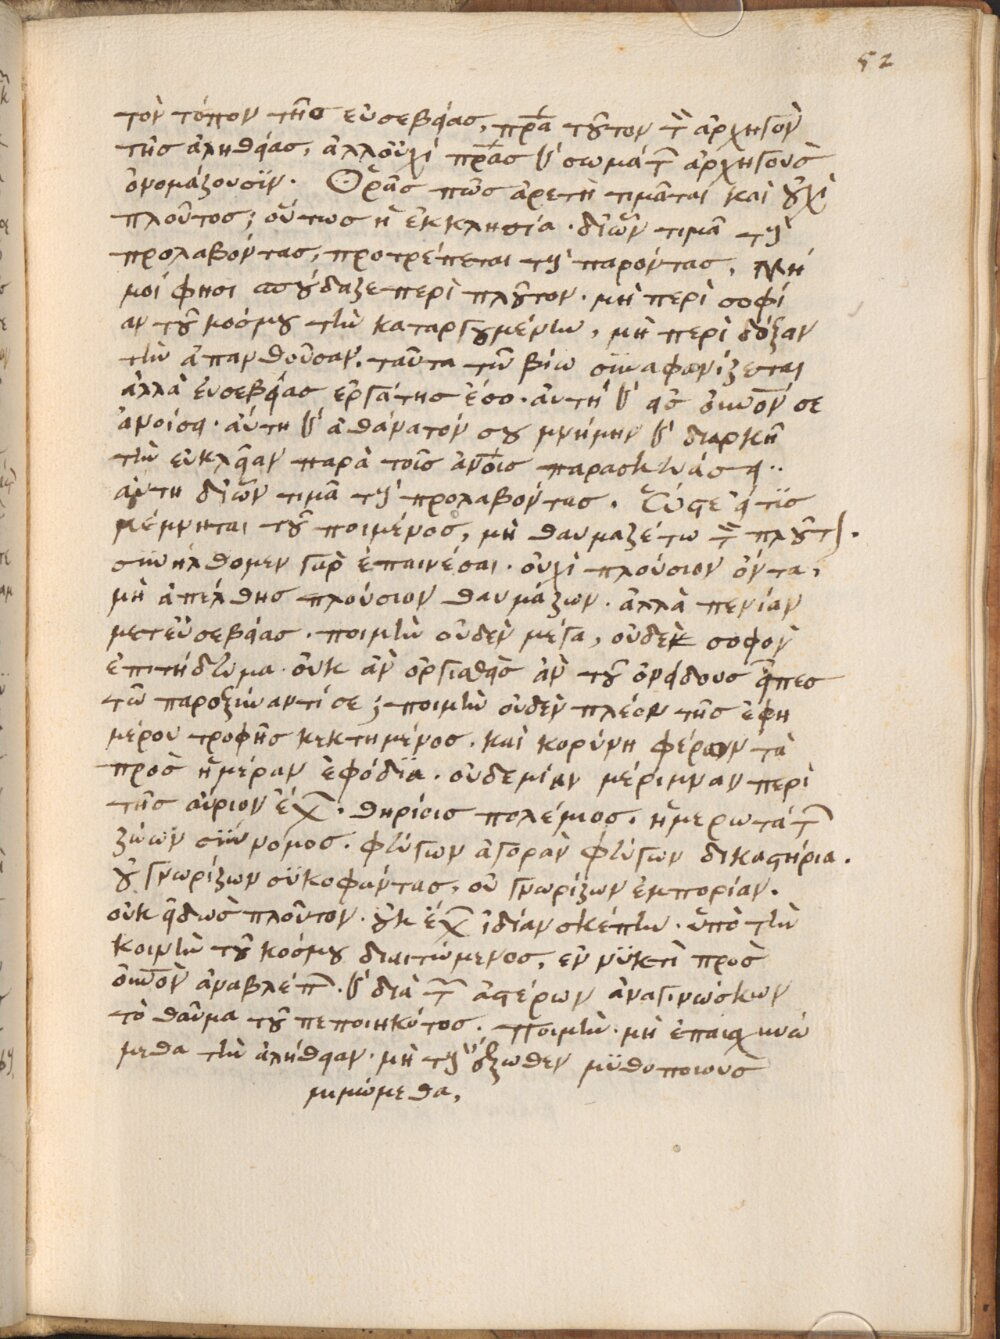 52
τὸν τόπον τῆς εὐσεβείας, πρ̅α τοῦτον τ̅ ἀρχηγὸν
τῆς ἀληθείας, ἀλλ' οὐχὶ πρ̅ας κ' σωμάτ̅ ἀρχηγοὺς
ὀνομάζουσϊν. Ὁρᾶς πῶς ἀρετὴ τιμᾶται καὶ οὐχὶ
πλοῦτος; οὕτως ἡ ἐκκλησία. δι' ὧν τιμᾶ τοὺς
προλαβόντας, προτρέπεται τοὺς παρόντας. Μή
μοί φησι σπούδαζε περὶ πλοῦτον. μὴ περὶ σοφί
αν τοῦ κόσμου τὴν καταργουμένην, μὴ περὶ δόξαν
τὴν ἀπανθοῦσαν. ταῦτα τῶ βίω συναφανίζεται
ἀλλὰ εὐσεβείας ἐργάτης ἔσο. αὐτή κ' εἰς οὐ̅νόν σε
ἀνοίσει. αὕτη κ' ἀθάνατόν σου μνήμην κ' διαρκῆ
τὴν εὔκλειαν παρὰ τοῖς ἀν̅οις παρασκευάσει..
αὕτη δι' ὧν τιμᾶ τοὺς προλαβόντας. Ὥστε εἴ τϊς
μέμνηται τοῦ ποιμένος, μὴ θαυμαζέτω τ̅ πλούτ.
συνήλθομεν γὰρ ἐπαινέσαι. οὐχὶ πλούσιον ὄντα,
μὴ ἀπέλθης πλούσιον θαυμάζων. ἀλλὰ πενίαν
μετ' εὐσεβείας. ποιμὴν οὐδὲν μέγα, οὐδὲν σοφὸν
ἐπιτήδευμα. οὐκ ἂν ὀργισθεὶς ἂν τοῦ ὀνείδους εἶπες
τῶ παροξύναντί σε; ποιμὴν οὐδὲν πλέον τῆς ἐφη
μέρου τροφῆς κεκτημένος. καὶ κορύνη φέρων τὰ
πρὸς ἡμέραν ἐφόδϊα. οὐδεμίαν μέριμναν περὶ
τῆς αὔριον ἔχ̅. θηρίοις πολέμιος. ἡμερωτάτ̅
ζώων σύννομος. φεύγων ἀγορὰν φεύγων δικαστήρια.
οὐ γνωρίζων συκοφάντας, οὐ γνωρίζων ἐμπορίαν.
οὐκ εἰδὼς πλοῦτον. οὐκ ἔχ̅ ἰδίαν σκέπην. ὑπὸ τὴν
κοινὴν τοῦ κόσμου διαιτώμενος, ἐν νυκτὶ πρὸς
οὐ̅νὸν ἀναβλέπ̅. κ' διὰ τ̅ ἀστέρων ἀναγινώσκων
τὸ θαῦμα τοῦ πεποιηκότος. Ποιμὴν. μὴ ἐπαισχυνώ
μεθα τὴν ἀλήθειαν. μὴ τοὺς ἔξωθεν μϋθοποιοὺς
μιμώμεθα,